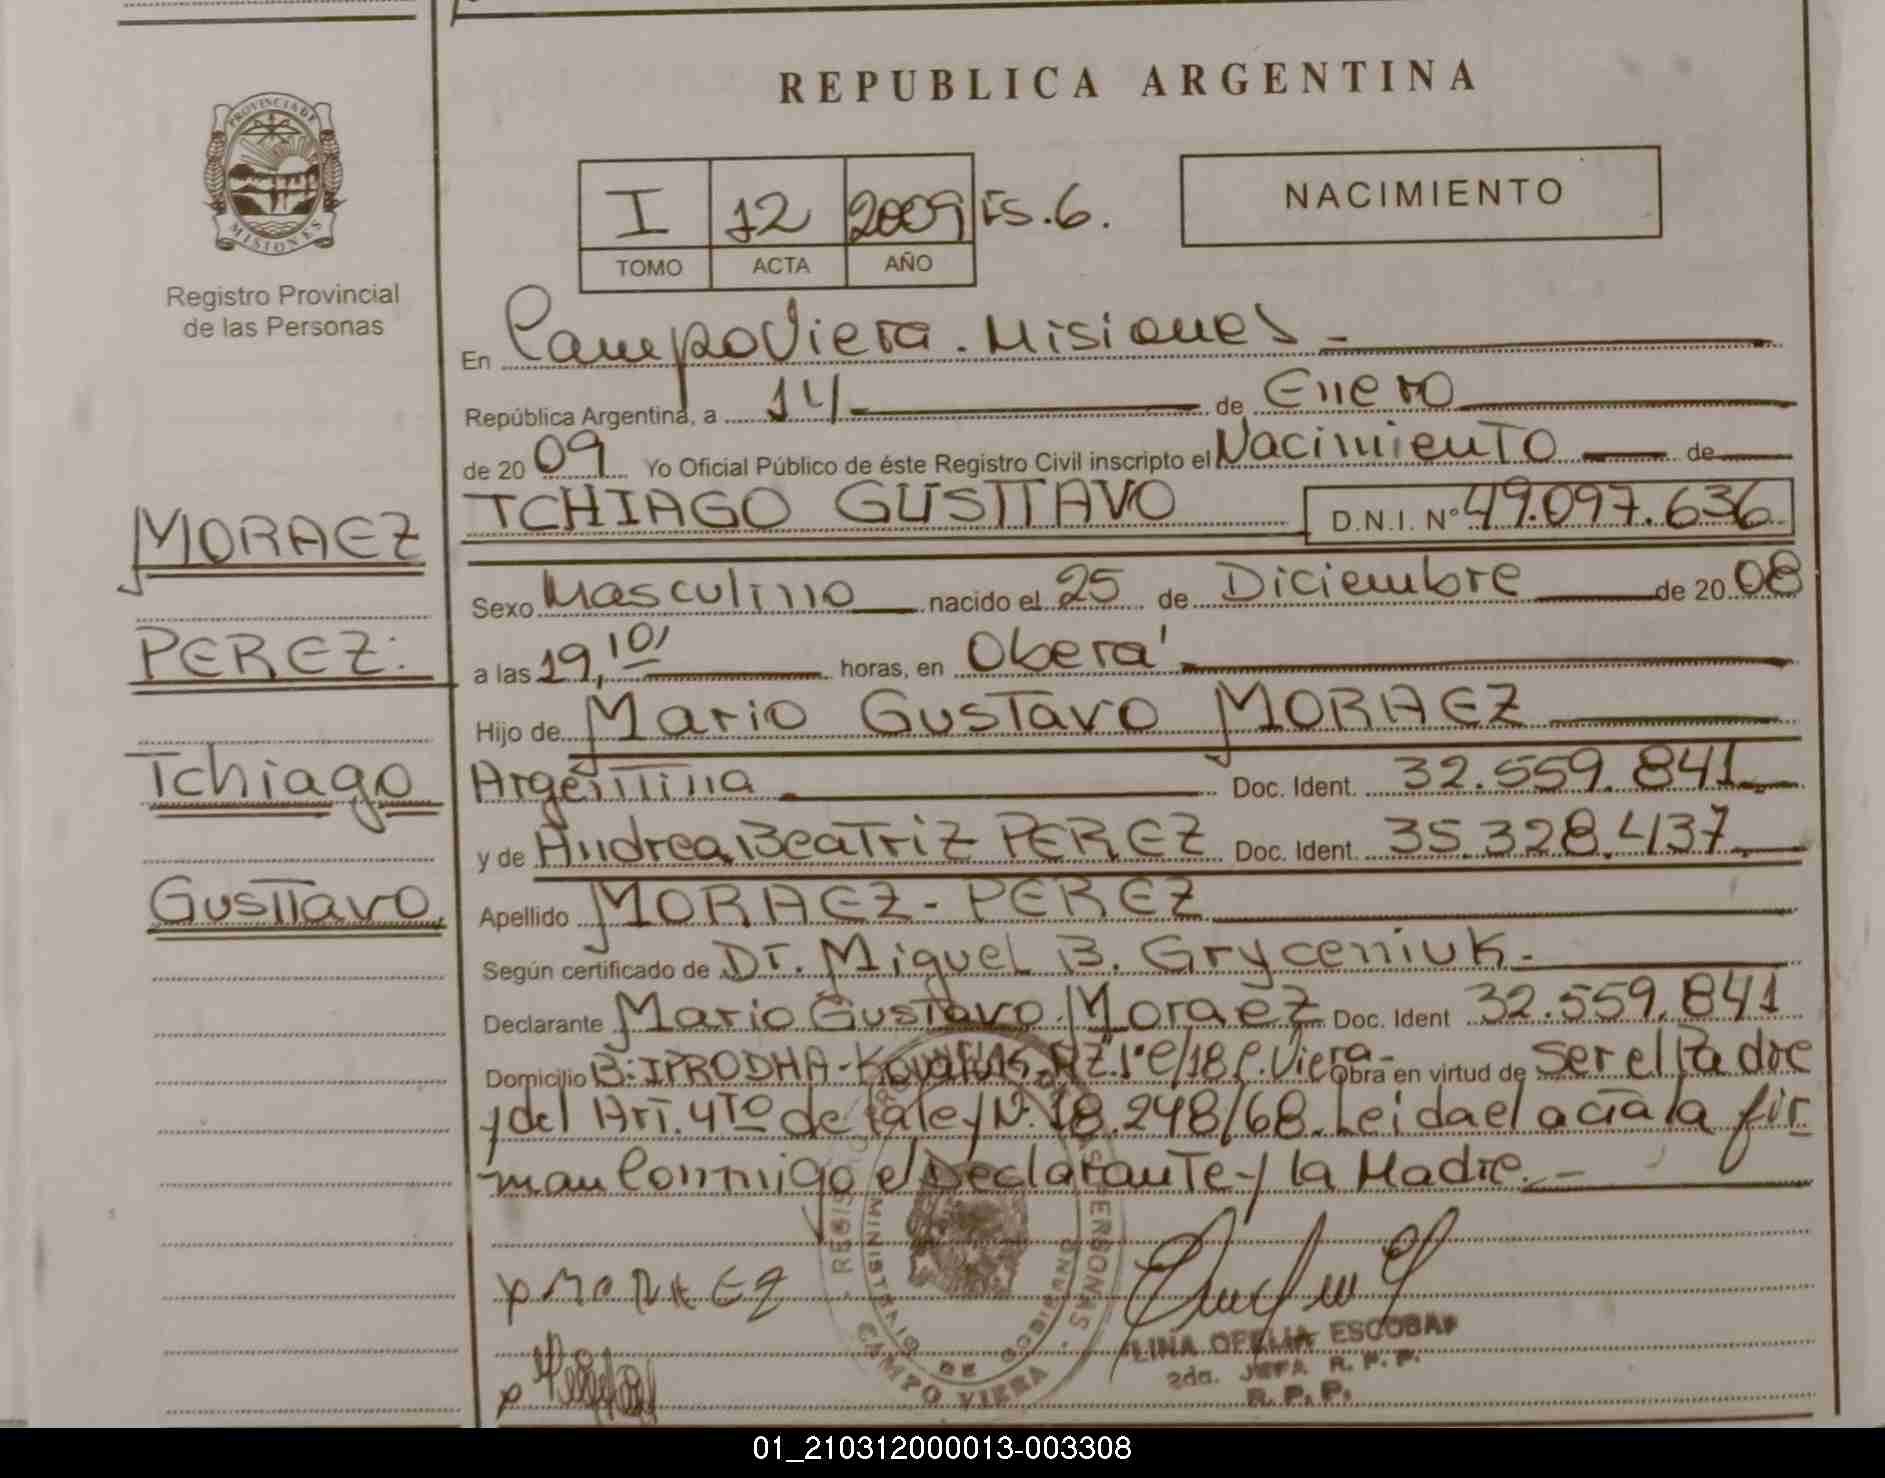 PROVINCIA DE
MISIONES
Registro Provincial
de las Personas
MORAEZ
PEREZ:
Tchiago
Gusttavo
REPUBLICA ARGENTINA
I 12 2009 Fs.6.
TOMO ACTA AÑO
NACIMIENTO
En Campo Viera. Misiones -
República Argentina, a 14 de Enero
de 2009 Yo Oficial Público de éste Registro Civil inscripto el Nacimiento de
TCHIAGO GUSTTAVO D.N.I. Nº 49.097.636
Sexo Masculino nacido el 25 de Diciembre de 2008
a las 19,10' horas, en Oberá
Hijo de Mario Gustavo MORAEZ
Argentina Doc. Ident. 32.559.841
y de Andrea Beatriz PEREZ Doc. Ident. 35.328.437
Apellido MORAEZ - PEREZ
Según certificado de Dr. Miguel B. Gryceniuk.-
Declarante Mario Gustavo Moraez Doc. Ident 32.559.841
Domicilio B: IPRODHA - C/18 C. Viera - Obra en virtud de ser el Padre
y del Art. 4to de la ley N. 18.248/68. Leida el acta la fir
man Conmigo el Declarante y la Madre. -
x MORAEZ
x
CAMPO VIERA
MINISTERIO DE GOBIERNO
LINA OFELIA ESCOBAR
2da. JEFA R. P. P.
R. P. P.
01_210312000013-003308